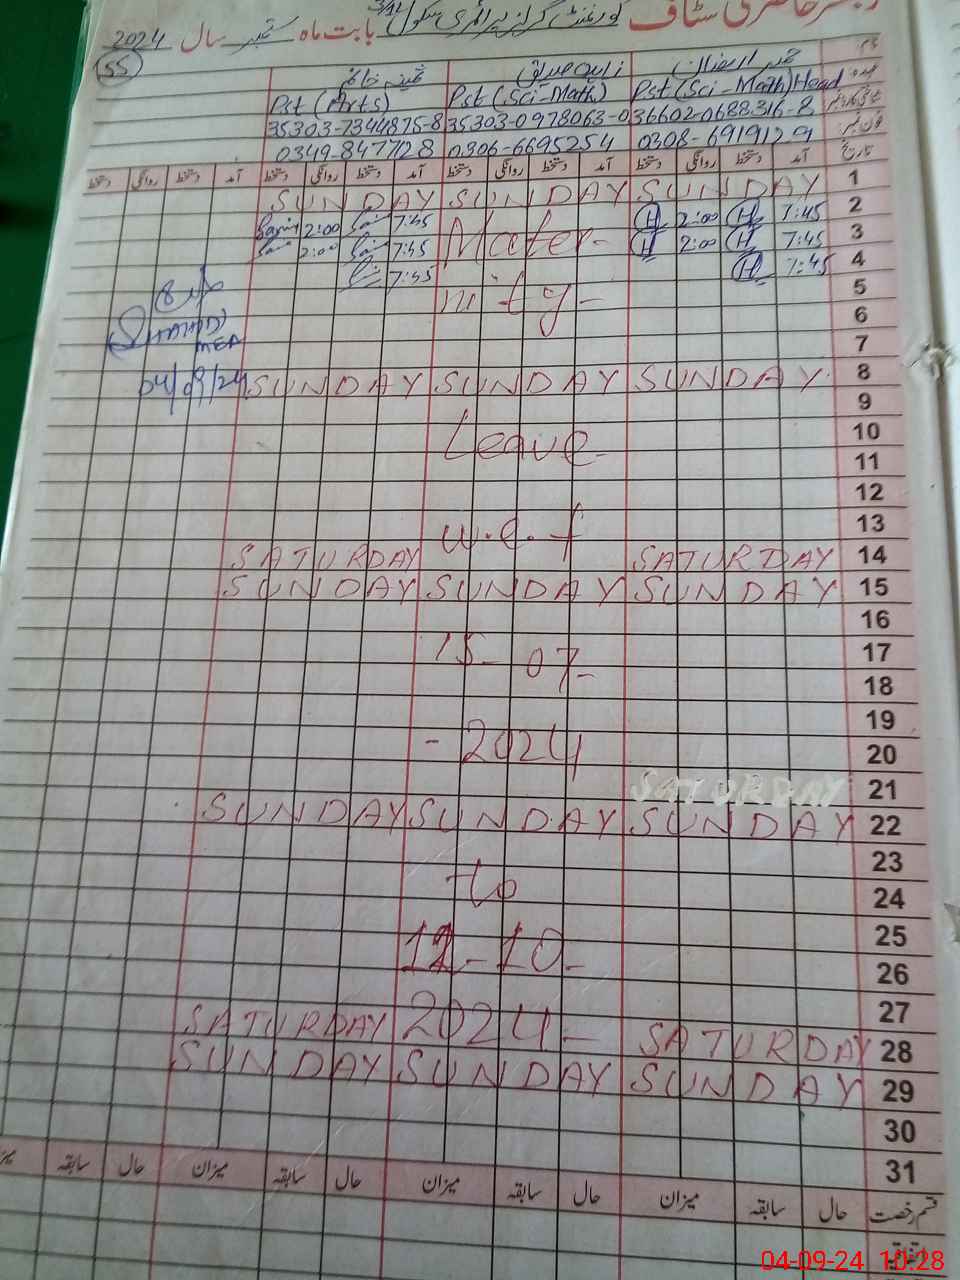 رجسٹر حاضری سٹاف گورنمنٹ گرلز پرائمری سکول بابت ماہ ستمبر سال 2024
55
نام
عہدہ Pst (Sci-Math) Head Pst (Sci-Math) Pst (Arts)
36602-0688316-8 35303-0978063-0 35303-7344875-8
فون نمبر 0306-6695254 0349-8477128
تاریخ آمد دستخط روانگی دستخط آمد دستخط روانگی دستخط آمد دستخط روانگی دستخط آمد دستخط روانگی دستخط
1 SUNDAY SUNDAY SUNDAY
2 7:45 H 2:00 H 7:45 2:00
3 7:45 H 2:00 H Mater- 7:45 2:00
4 7:45 H 7:45
5 nity-
6
7
SHAHID
MEA
04/09/24
8 SUNDAY SUNDAY SUNDAY
9
10 Leave-
11
12
13 w.e.f
14 SATURDAY SATURDAY
15 SUNDAY SUNDAY SUNDAY
16
17 15-07-
18
19
20 -2024
21 SATURDAY
22 SUNDAY SUNDAY SUNDAY
23
24 to
25
26 -10-
27
28 SATURDAY 2024- SATURDAY
29 SUNDAY SUNDAY SUNDAY
30
31
قسم رخصت حال سابقہ میزان حال سابقہ میزان حال سابقہ میزان حال سابقہ
اتفاقیہ
04-09-24 10:28